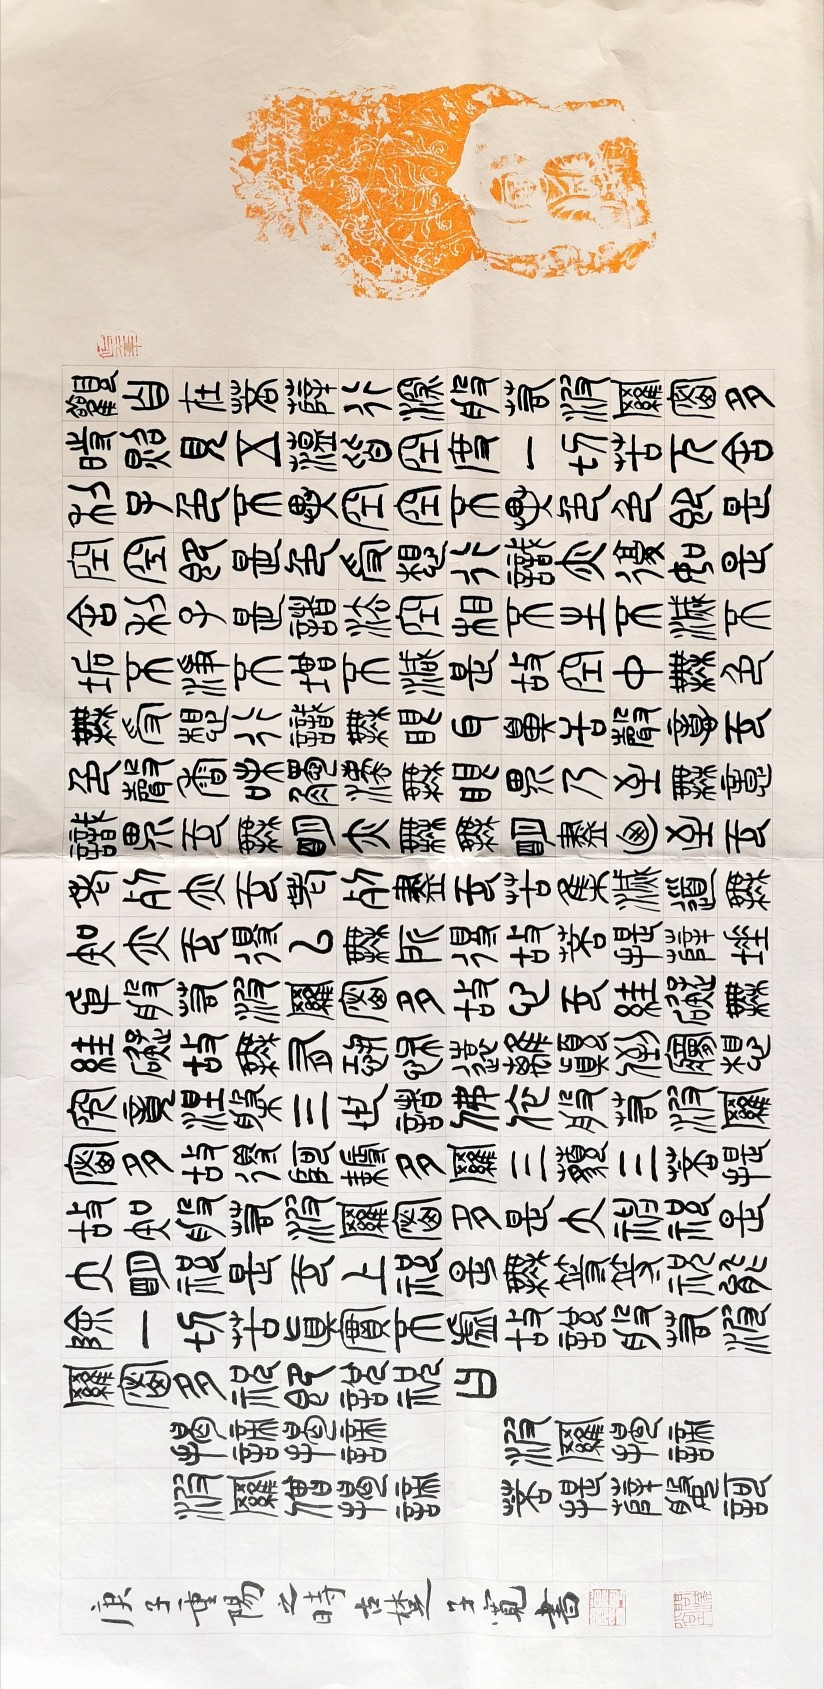 觀自在菩薩行深般若波羅蜜多
時照見五蘊皆空度一切苦厄舍
利子色不異空空不異色色即是
空空即是色受想行識亦復如是
舍利子是諸法空相不生不滅不
垢不淨不增不減是故空中無色
無受想行識無眼耳鼻舌身意无
色聲香味觸法無眼界乃至無意
識界无無明亦無無明盡乃至无
老死亦无老死盡无苦集滅道無
智亦无得以無所得故菩提薩埵
依般若波羅蜜多故心无罣礙無
罣礙故無有恐怖遠離顛倒夢想
究竟涅槃三世諸佛依般若波羅
蜜多故得阿耨多羅三藐三菩提
故知般若波羅蜜多是大神咒是
大明咒是无上咒是無等等咒能
除一切苦真實不虛故說般若波
羅蜜多咒即說咒曰
揭諦揭諦 波羅揭諦
波羅僧揭諦 菩提薩婆訶
庚子重陽之時 寬書